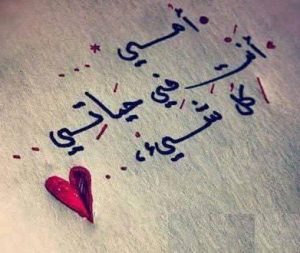 أنتِ أمي
أطهر شيء في حياتي